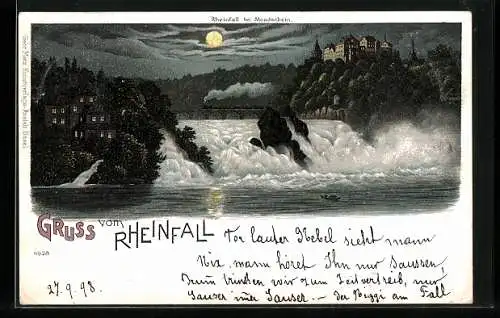 Rheinfall bei Mondschein.
GRUSS vom RHEINFALL
Vor lauter Nebel sieht mann
Nix, mann höret Ihn nur Saussen,
Drum trinken wir zum Zeitvertreib, nur
Sauser Sauser. – Der Beppi am Fall
27.9.98.